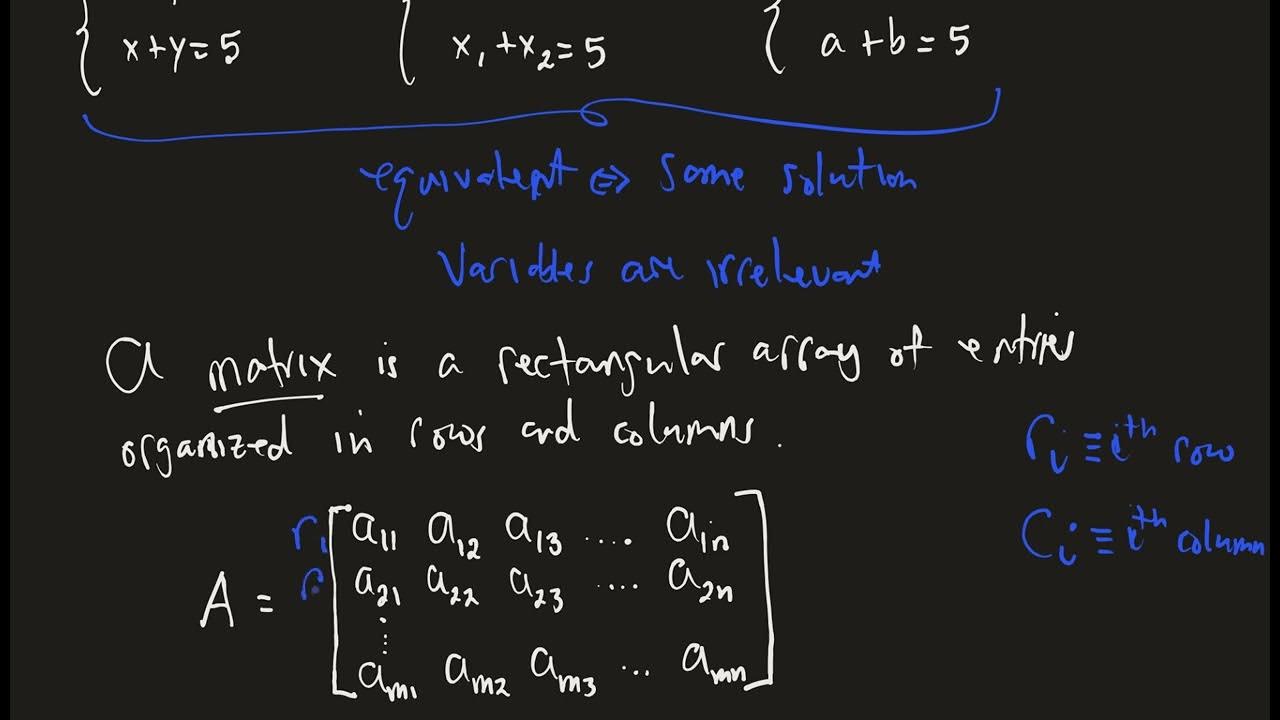 { x+y=5 { x₁+x₂=5 { a+b=5
equivalent ⇔ same solution
Variables are irrelevant
A matrix is a rectangular array of entries
organized in rows and columns.
rᵢ ≡ iᵗʰ row
Cᵢ ≡ iᵗʰ column
r₁ [ a₁₁ a₁₂ a₁₃ .... a₁ₙ ]
A = r [ a₂₁ a₂₂ a₂₃ .... a₂ₙ ]
⋮
aₘ₁ aₘ₂ aₘ₃ ... aₘₙ